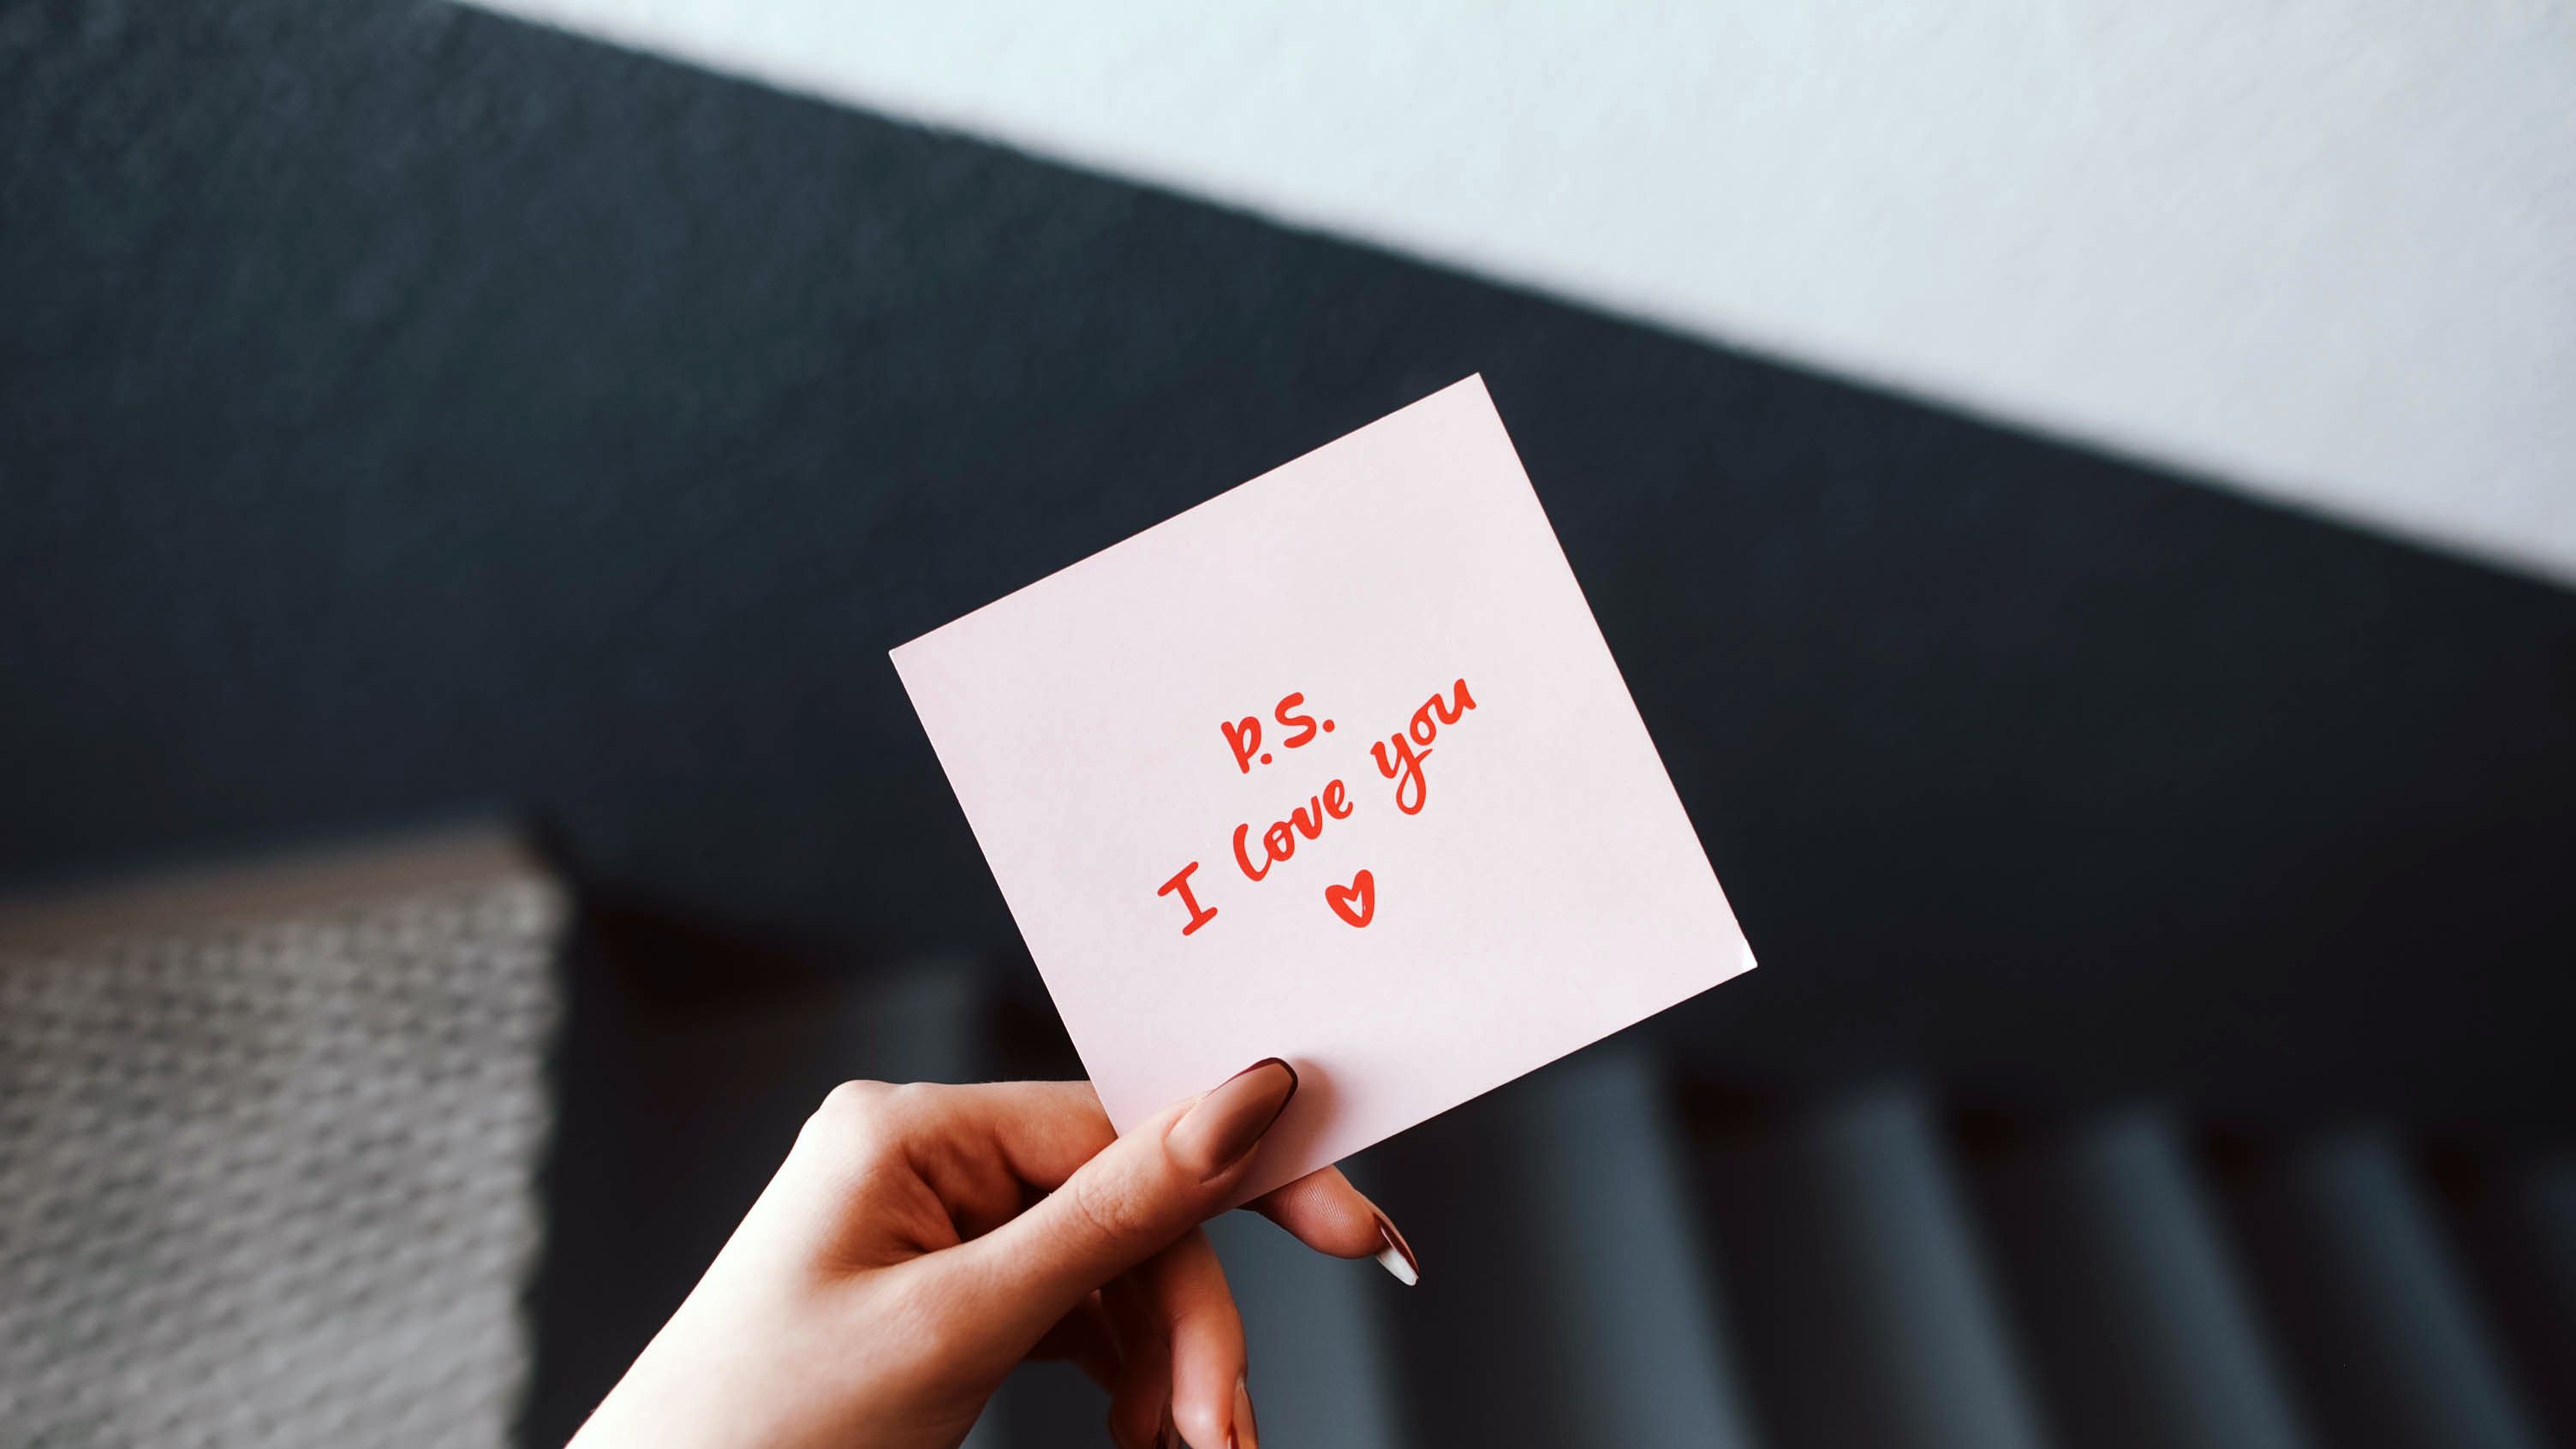 P.S.
I love you